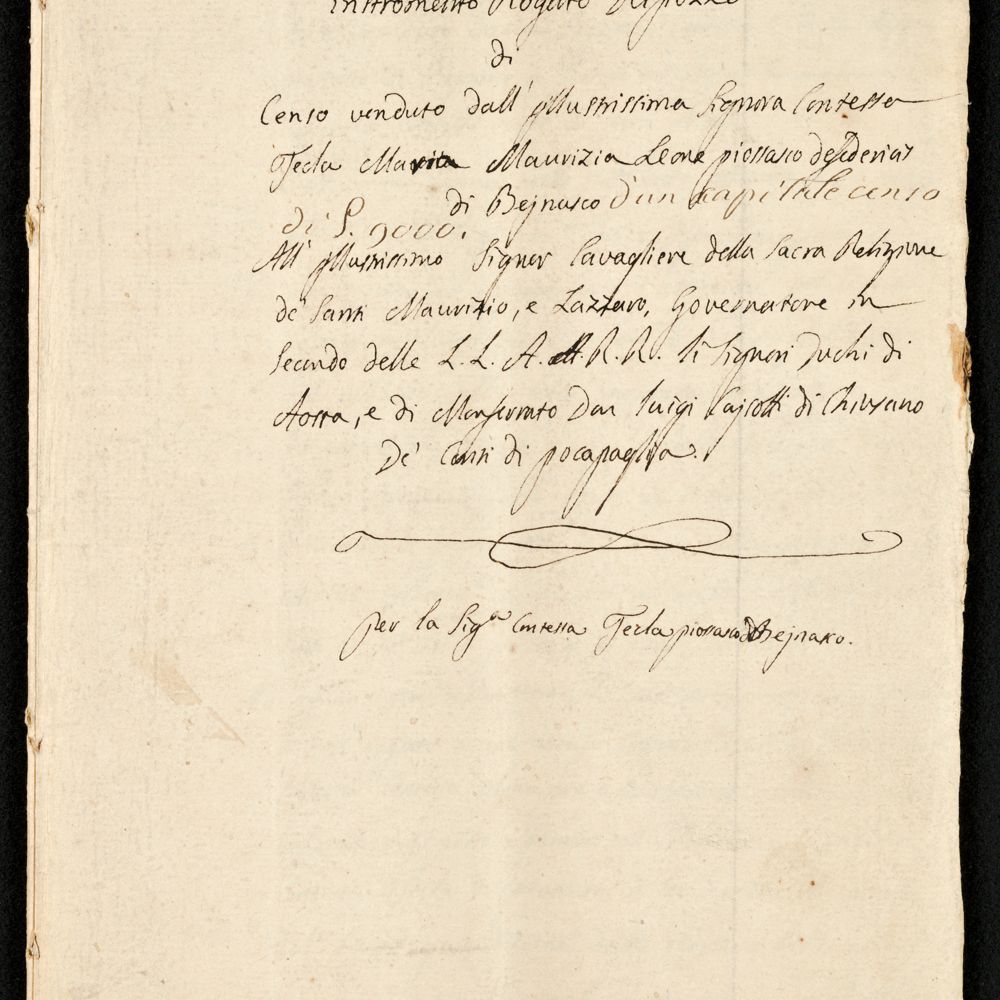 Instromento Rogato
di
Censo venduto dall' Jllustrissima Signora Contessa
Tecla Maria Maurizia Leone piossasco
di Bejnasco D'un capitale censo
di £. 9000.
All' Jllustrissimo Signor Cavagliere della Sacra Religione
de' Santi Maurizio, e Lazzaro, Governatore in
Secondo delle L. L. A. A. R. R. li Signori Duchi di
Aosta, e di Monferrato Don Luigi Cajsotti di Chiusano
De' Conti di pocapaglia.
per la Sig.ra Contessa Tecla piossasco di Bejnasco.